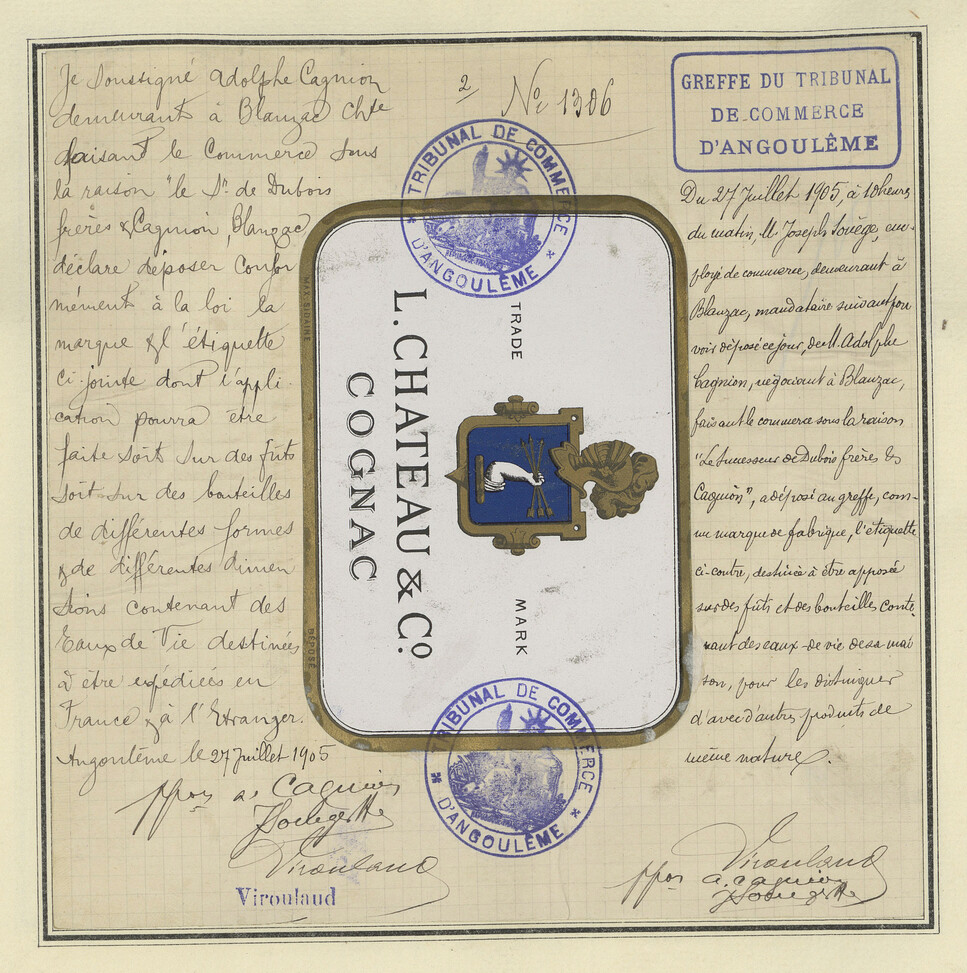 Je Soussigné Adolphe Cagnion
demeurant à Blanzac Chte
faisant le Commerce sous
la raison "le Sr. de Dubois
frères & Cagnion, Blanzac
déclare déposer Confor
mément à la loi la
marque & l'étiquette
Ci-jointe dont l'appli
cation pourra être
faite soit sur des fûts
soit sur des bouteilles
de différentes formes
& de différentes dimen
sions contenant des
Eaux de Vie destinées
à être expédiées en
France & à l'Etranger.
Angoulême le 27 Juillet 1905
ppon a. Cagnion
Viroulaud
Viroulaud
2
No. 1306
TRIBUNAL DE COMMERCE
D'ANGOULÊME
TRADE MARK
L. CHATEAU & Co.
COGNAC
DÉPOSÉ
TRIBUNAL DE COMMERCE
D'ANGOULÊME
GREFFE DU TRIBUNAL
DE COMMERCE
D'ANGOULÊME
Du 27 Juillet 1905, à 10 heures
du matin, M. Joseph Souège, em-
ployé de commerce, demeurant à
Blanzac, mandataire suivant pou
voir déposé ce jour, de M. Adolphe
Cagnion, négociant à Blanzac,
faisant le commerce sous la raison
"Le Successeur de Dubois frères &
Cagnion", a déposé au greffe, com-
me marque de fabrique, l'étiquette
ci-contre, destinée à être apposée
sur des fûts et des bouteilles conte-
nant des eaux-de-vie de sa mai
son, pour les distinguer
d'avec d'autres produits de
même nature.
Viroulaud
ppon a. Cagnion